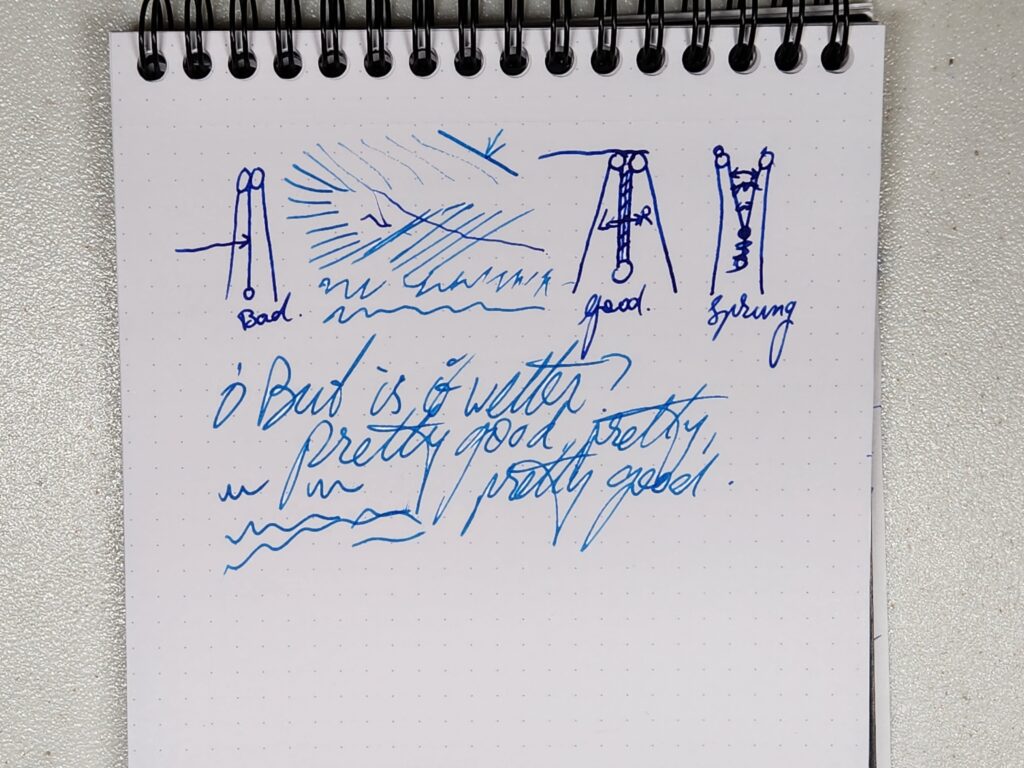 Bad.
good.
Sprung
L R
But is it wetter?
pretty good, pretty,
pretty good.